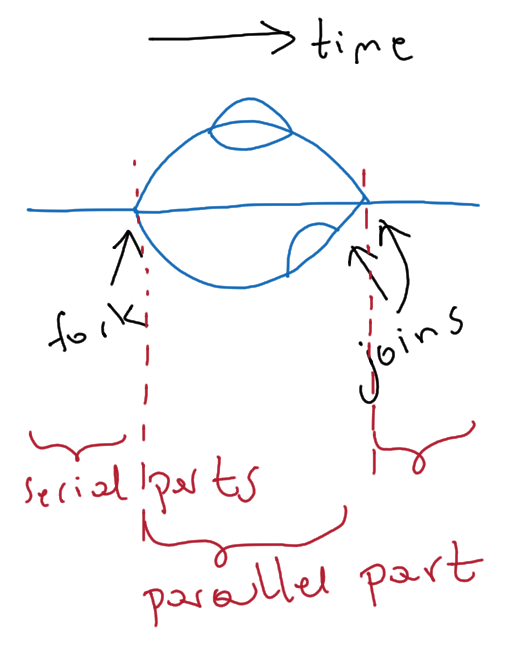 time
fork
joins
serial parts
parallel part